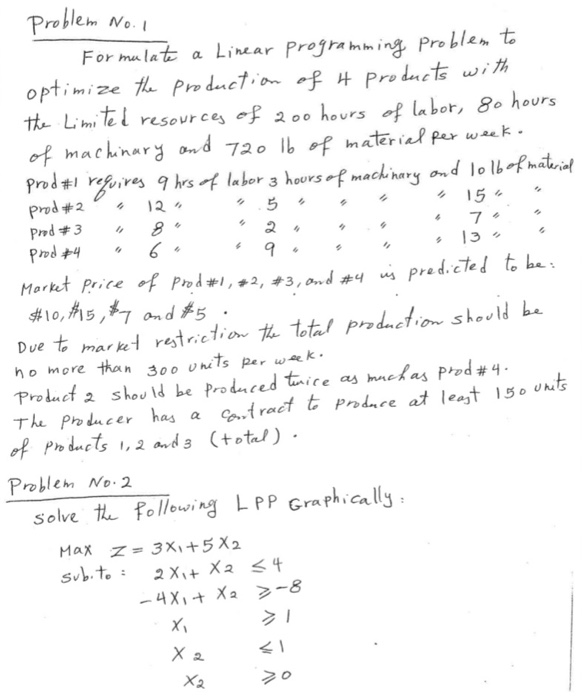 Problem No. 1
Formulate a Linear Programming Problem to
optimize the Production of 4 Products with
the Limited resources of 200 hours of labor, 80 hours
of machinary and 720 lb of material per week.
Prod #1 requires 9 hrs of labor 3 hours of machinary and 10 lb of material
Prod #2 " 12 " " 5 " " " " 15 " "
Prod #3 " 8 " " 2 " " " " 7 " "
Prod #4 " 6 " " 9 " " " " 13 " "
Market Price of Prod #1, #2, #3, and #4 is predicted to be:
$10, $15, $7 and $5.
Due to market restriction the total production should be
no more than 300 units per week.
Product 2 should be produced twice as much as prod #4.
The Producer has a contract to Produce at least 150 units
of Products 1, 2 and 3 (total).
Problem No. 2
Solve the following LPP Graphically:
Max Z = 3X₁ + 5X₂
Sub. to: 2X₁ + X₂ ≤ 4
-4X₁ + X₂ ≥ -8
X₁ ≥ 1
X₂ ≤ 1
X₂ ≥ 0